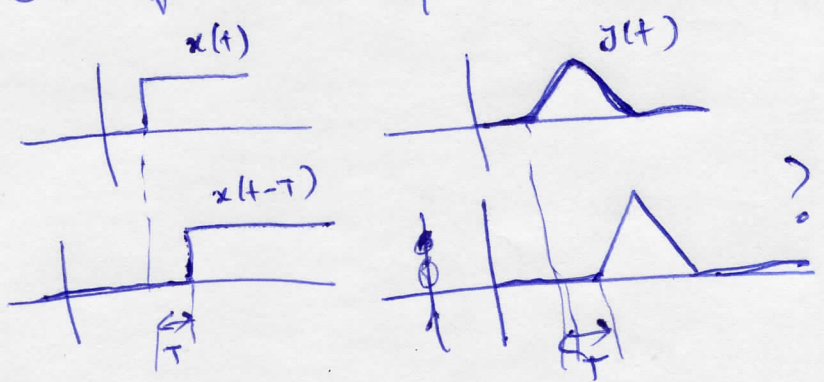 x(t)
y(t)
x(t-T)
?
T
T